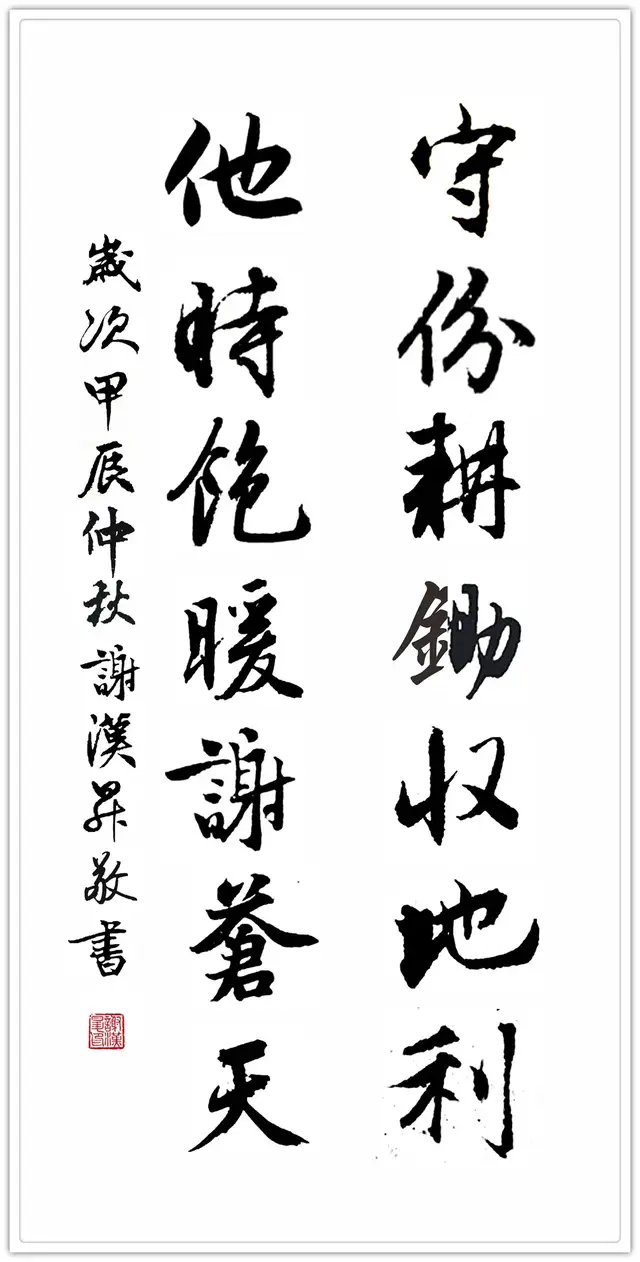 守份耕鋤収地利
他時飽暖謝蒼天
歲次甲辰仲秋謝漢昇敬書